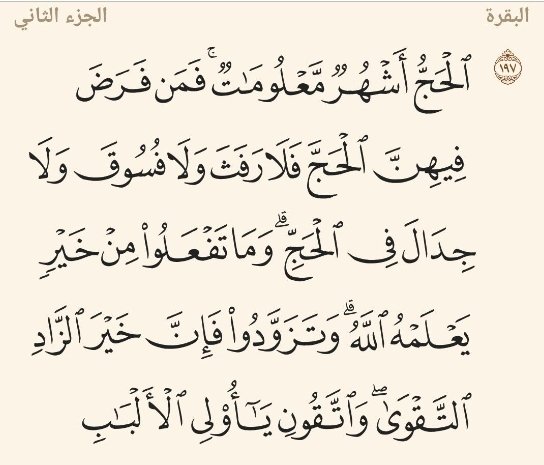 البقرة الجزء الثاني
١٩٧ ٱلۡحَجُّ أَشۡهُرٞ مَّعۡلُومَٰتٞۚ فَمَن فَرَضَ
فِيهِنَّ ٱلۡحَجَّ فَلَا رَفَثَ وَلَا فُسُوقَ وَلَا
جِدَالَ فِي ٱلۡحَجِّۗ وَمَا تَفۡعَلُواْ مِنۡ خَيۡرٖ
يَعۡلَمۡهُ ٱللَّهُۗ وَتَزَوَّدُواْ فَإِنَّ خَيۡرَ ٱلزَّادِ
ٱلتَّقۡوَىٰۖ وَٱتَّقُونِ يَٰٓأُوْلِي ٱلۡأَلۡبَٰبِ